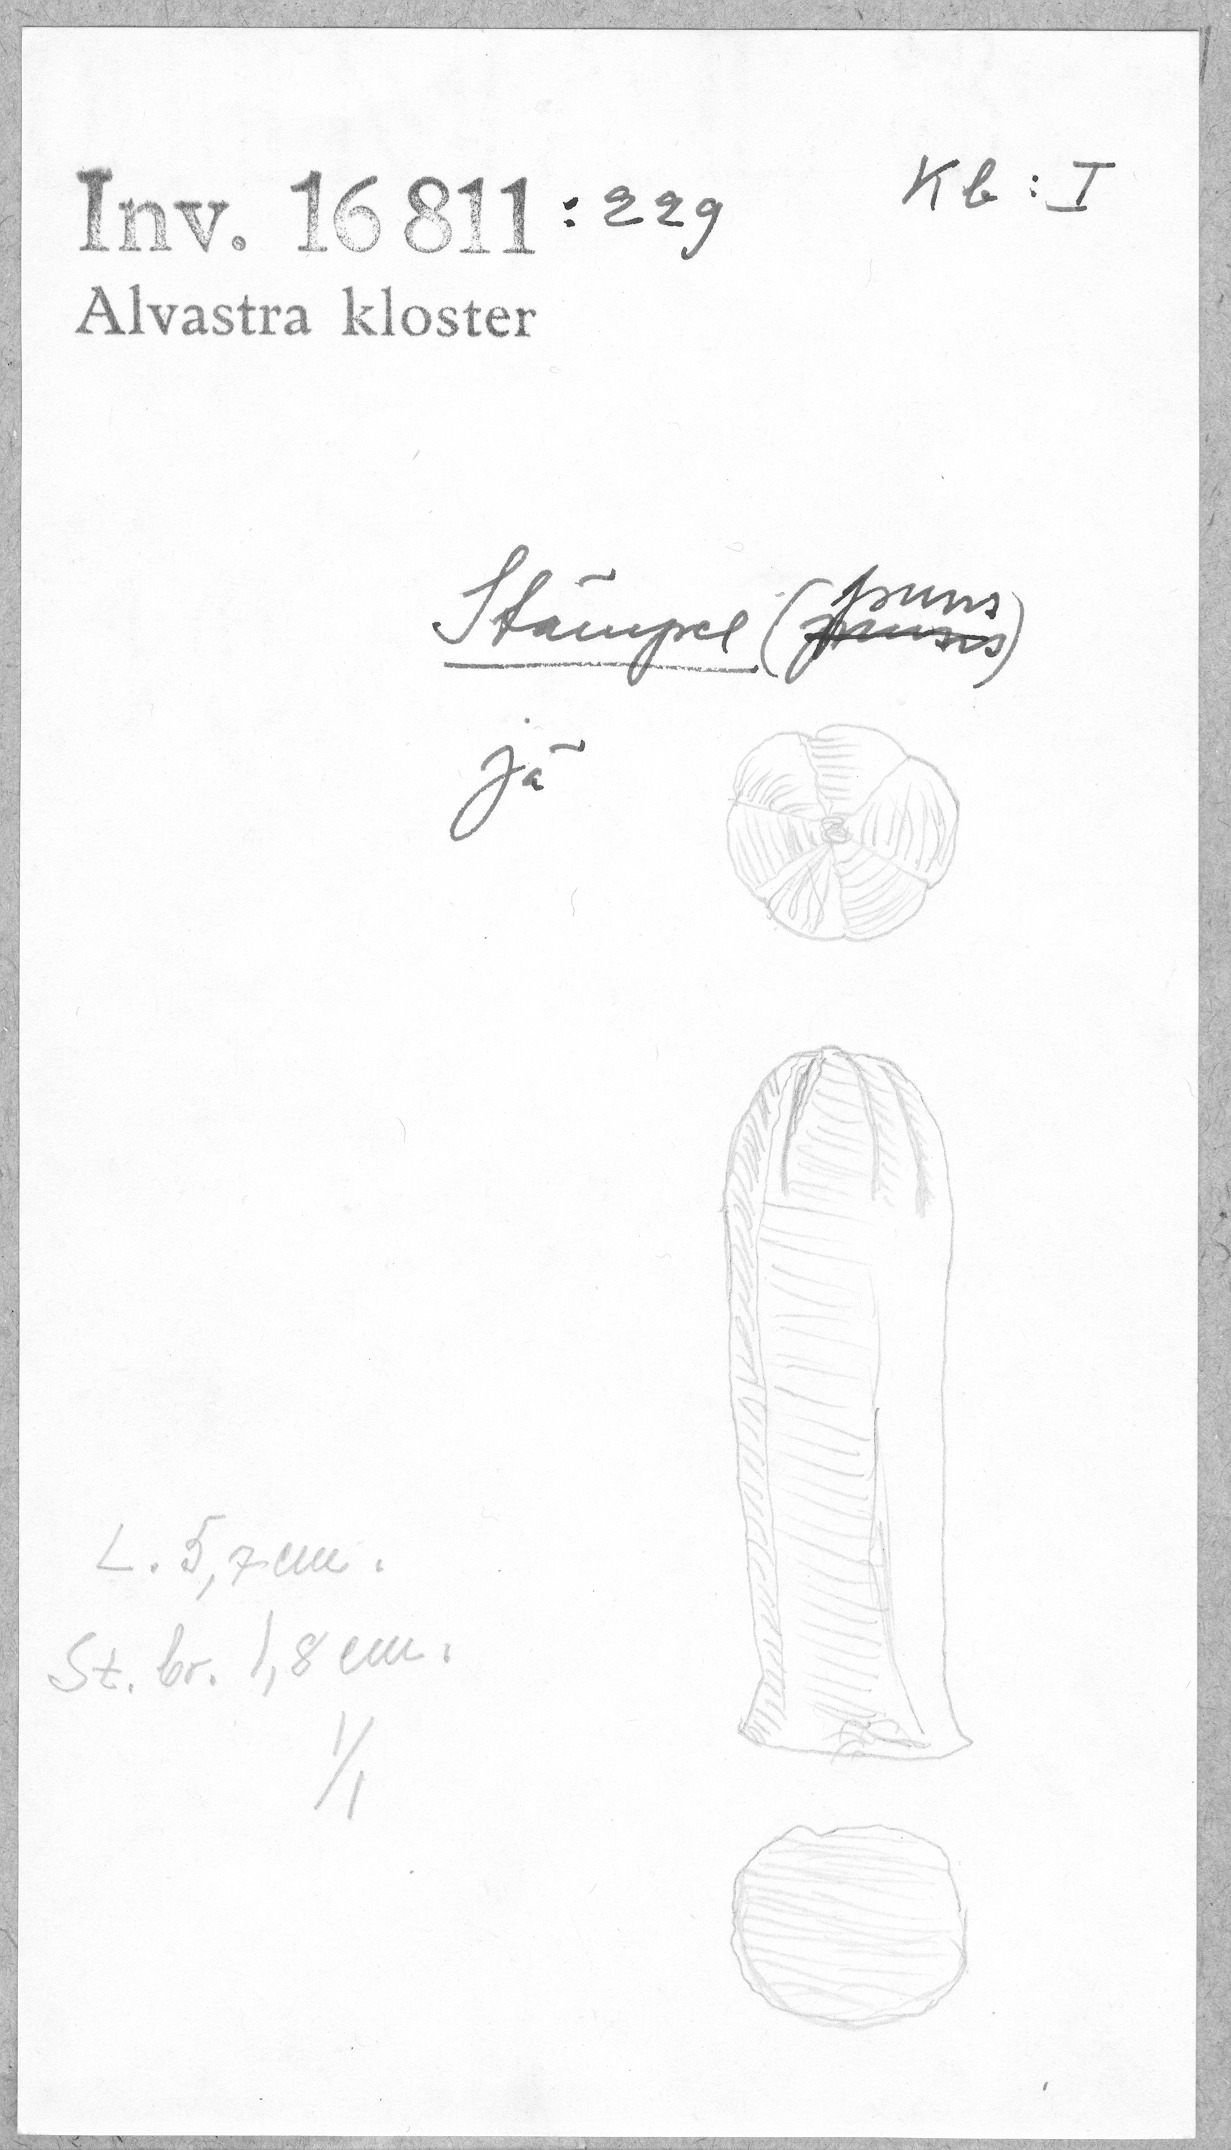 Inv. 16 811:229
Kb:I
Alvastra kloster
Stämpel (puns)
jä
L. 5,7 cm.
St. br. 1,8 cm.
1/1